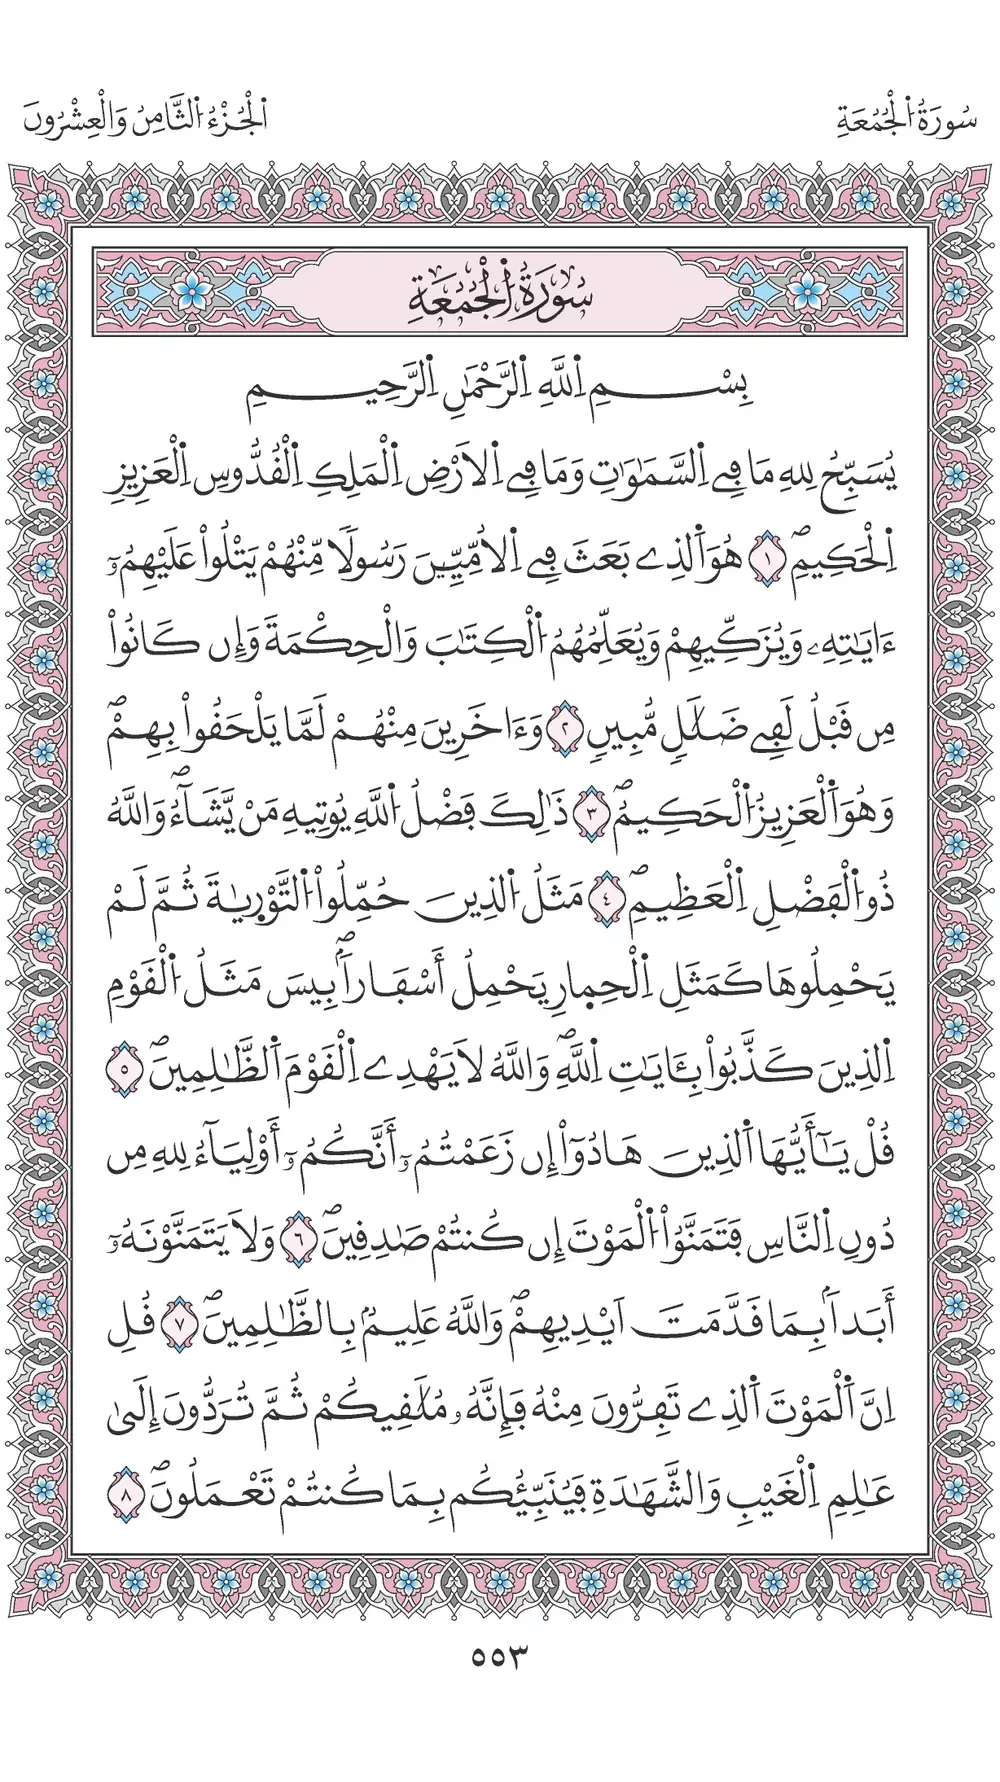 سُورَةُ الْجُمُعَةِ
الْجُزْءُ الثَّامِنُ وَالْعِشْرُونَ
سُورَةُ الْجُمُعَةِ
بِسْمِ اِللَّهِ اِلرَّحْمَٰنِ اِلرَّحِيمِ
يُسَبِّحُ لِلهِ مَا فِے اِلسَّمَٰوَٰتِ وَمَا فِے اِلَارْضِ اِلْمَلِكِ اِلْقُدُّوسِ اِلْعَزِيزِ
اِلْحَكِيمِۖ ١ هُوَ اَلذِے بَعَثَ فِے اِلُامِّيِّـۧنَ رَسُولٗا مِّنْهُمْ يَتْلُواْ عَلَيْهِمُۥٓ
ءَايَٰتِهِۦ وَيُزَكِّيهِمْ وَيُعَلِّمُهُمُ اُلْكِتَٰبَ وَالْحِكْمَةَ وَإِن كَانُواْ
مِن قَبْلُ لَفِے ضَلَٰلٖ مُّبِينٖ ٢ وَءَاخَرِينَ مِنْهُمْ لَمَّا يَلْحَقُواْ بِهِمْۖ
وَهُوَ اَلْعَزِيزُ اُلْحَكِيمُۖ ٣ ذَٰلِكَ فَضْلُ اُللَّهِ يُوتِيهِ مَنْ يَّشَآءُۖ وَاللَّهُ
ذُو اُلْفَضْلِ اِلْعَظِيمِۖ ٤ مَثَلُ اُلذِينَ حُمِّلُواْ اُلتَّوْر۪يٰةَ ثُمَّ لَمْ
يَحْمِلُوهَا كَمَثَلِ اِلْحِم۪ارِ يَحْمِلُ أَسْفَاراَۢۖ بِيسَ مَثَلُ اُلْقَوْمِ
اِلذِينَ كَذَّبُواْ بِـَٔايَٰتِ اِللَّهِۖ وَاللَّهُ لَا يَهْدِے اِلْقَوْمَ اَلظَّٰلِمِينَۖ ٥
قُلْ يَٰٓأَيُّهَا اَلذِينَ هَادُوٓاْ إِن زَعَمْتُمُۥٓ أَنَّكُمُۥٓ أَوْلِيَآءُ لِلهِ مِن
دُونِ اِلنَّاسِ فَتَمَنَّوُاْ اُلْمَوْتَ إِن كُنتُمْ صَٰدِقِينَۖ ٦ وَلَا يَتَمَنَّوْنَهُۥٓ
أَبَداَۢ بِمَا قَدَّمَتَ اَيْدِيهِمْۖ وَاللَّهُ عَلِيمُۢ بِالظَّٰلِمِينَۖ ٧ قُلِ
اِنَّ اَلْمَوْتَ اَلذِے تَفِرُّونَ مِنْهُ فَإِنَّهُۥ مُلَٰقِيكُمْ ثُمَّ تُرَدُّونَ إِلَىٰ
عَٰلِمِ اِلْغَيْبِ وَالشَّهَٰدَةِ فَيُنَبِّئُكُم بِمَا كُنتُمْ تَعْمَلُونَۖ ٨
٥٥٣